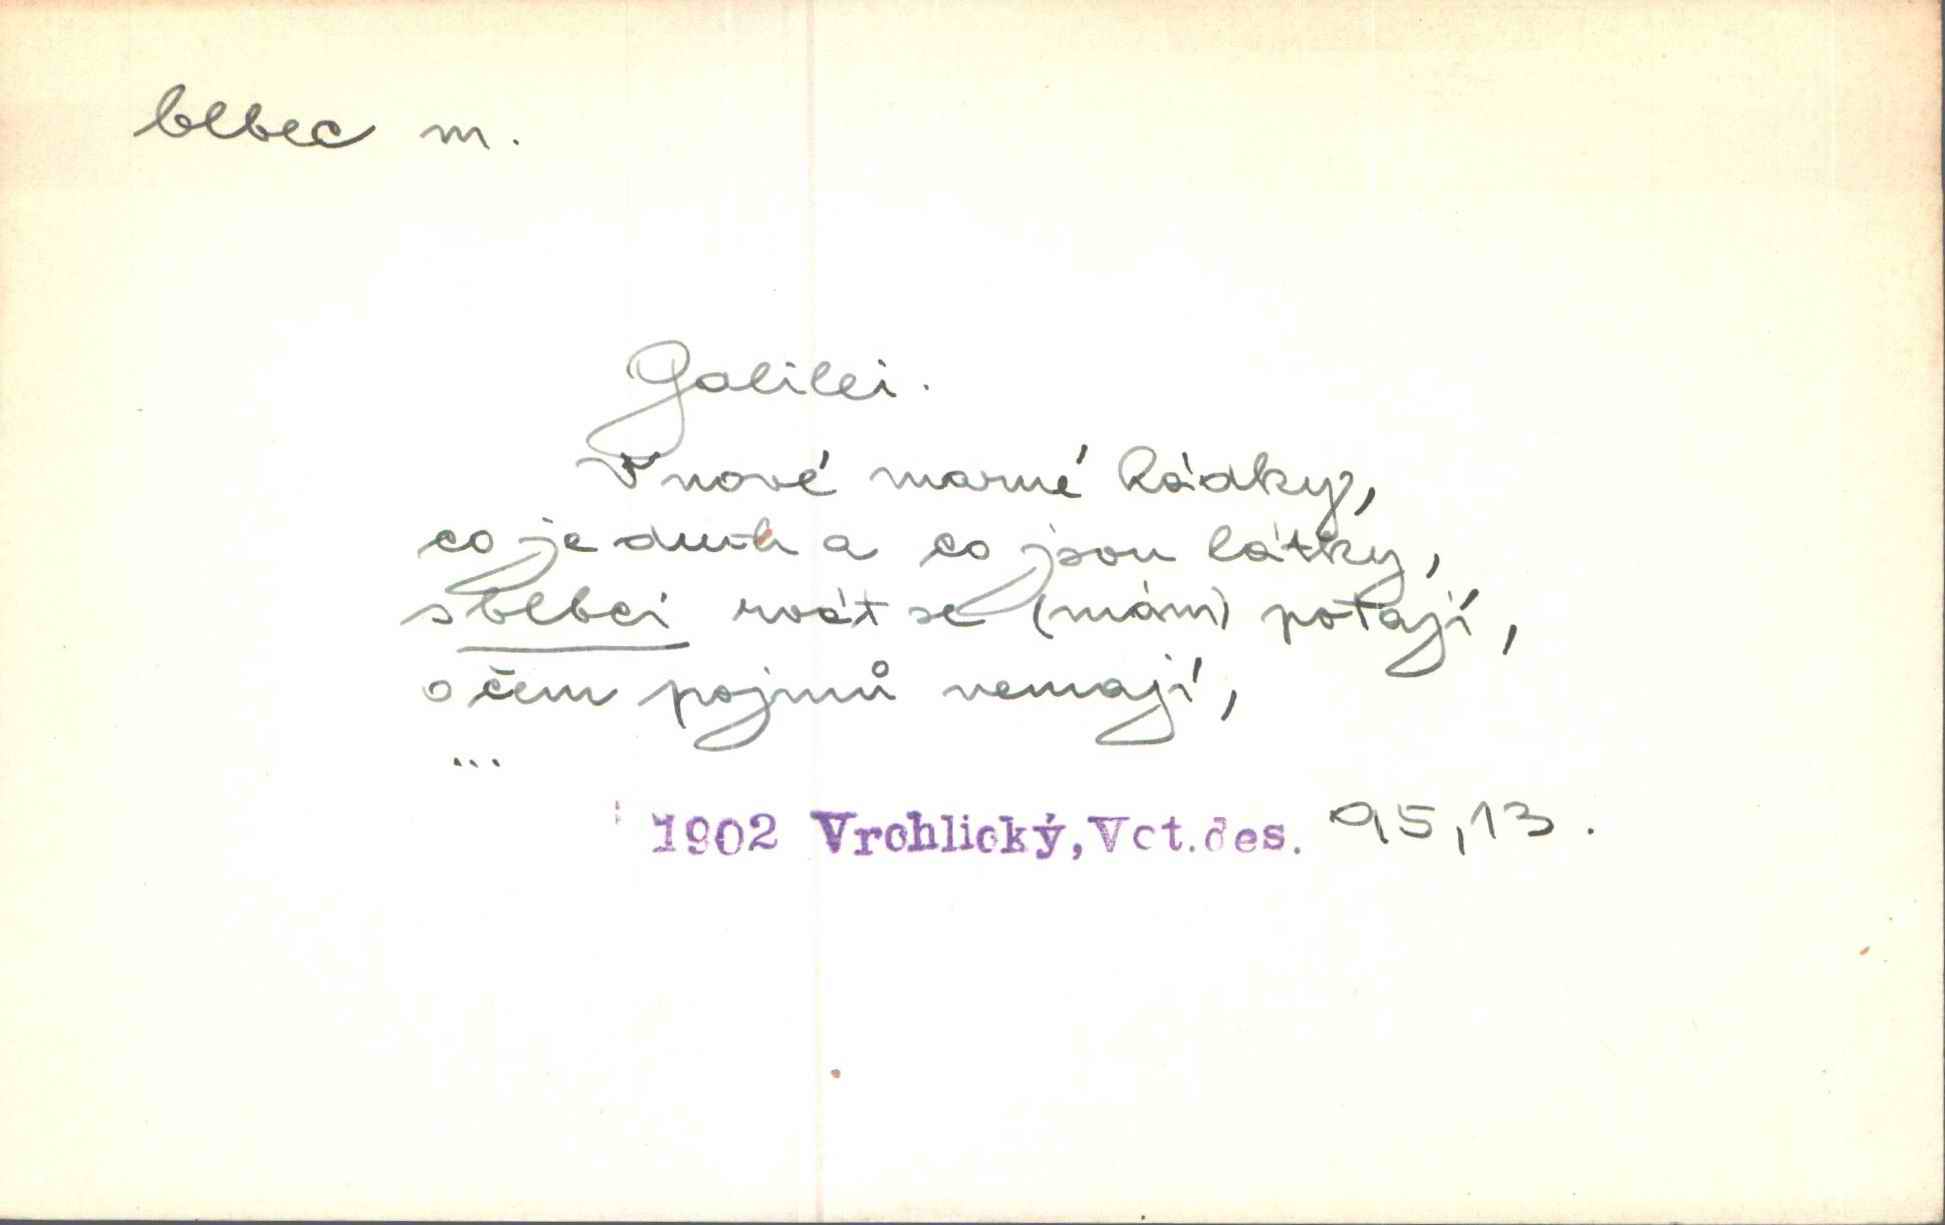 blbec m.
Galilei.
V nové marné hádky,
co je duch a co jsou látky,
s blbci rvát se (mám) potají,
o čem pojmů nemají,
...
1902 Vrchlický, Vct. des. 95,13.